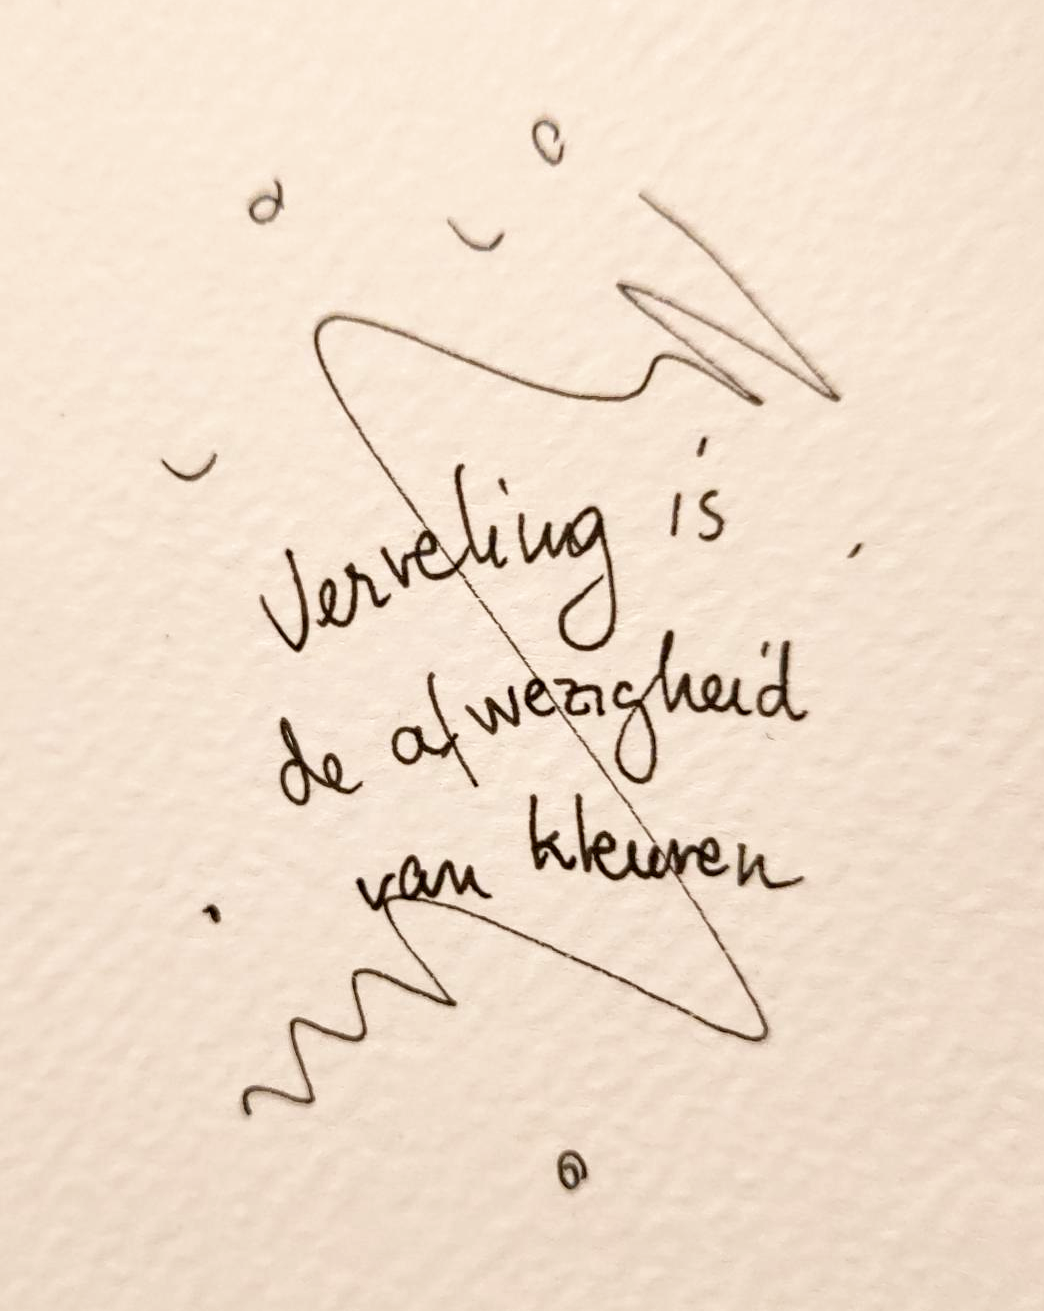 Verveling is
de afwezigheid
van kleuren